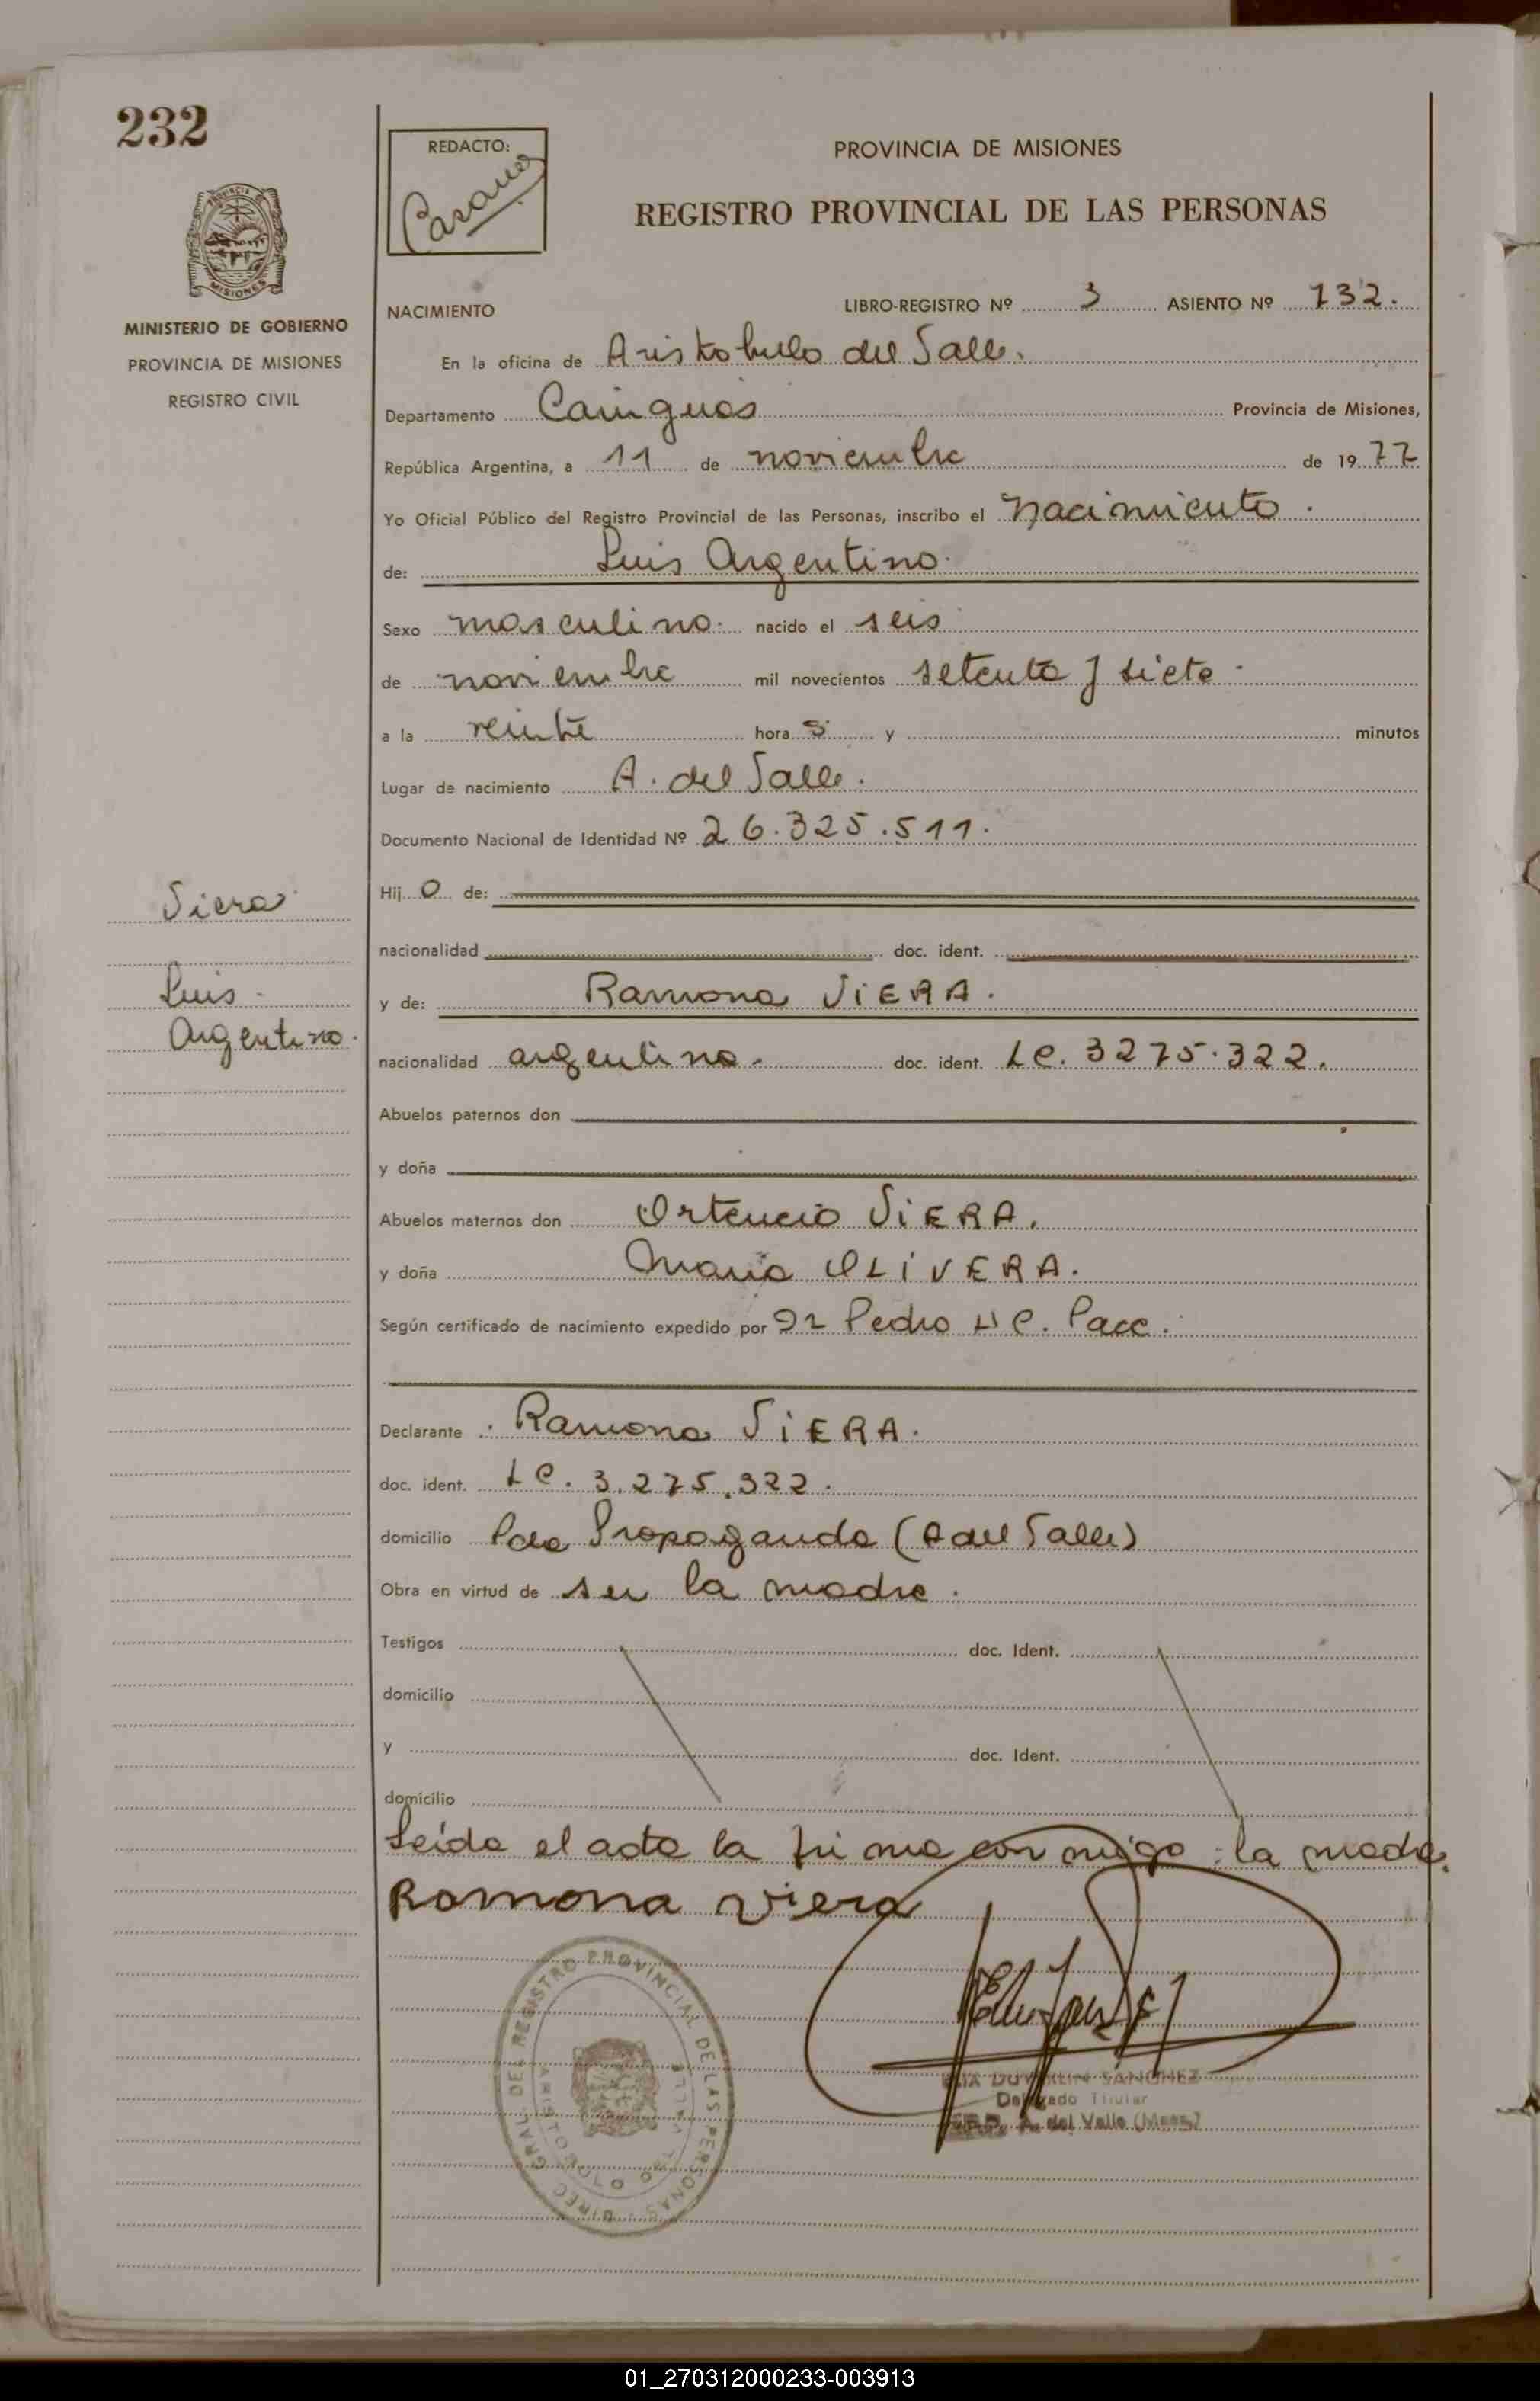 232
REDACTO:
PROVINCIA DE MISIONES
REGISTRO PROVINCIAL DE LAS PERSONAS
PROVINCIA
MISIONES
MINISTERIO DE GOBIERNO
PROVINCIA DE MISIONES
REGISTRO CIVIL
NACIMIENTO LIBRO-REGISTRO Nº 3 ASIENTO Nº 732.
En la oficina de Aristobulo del Valle.
Departamento Cainguás Provincia de Misiones,
República Argentina, a 11 de noviembre de 1977
Yo Oficial Público del Registro Provincial de las Personas, inscribo el Nacimiento.
de: Luis Argentino.
Sexo masculino. nacido el seis
de noviembre mil novecientos setenta y siete.
a la veinte hora s y minutos
Lugar de nacimiento A. del Valle.
Documento Nacional de Identidad Nº 26.325.511.
Hij o de:
nacionalidad doc. ident.
Viera
Luis
Argentino.
y de: Ramona VIERA.
nacionalidad argentina. doc. ident. LC. 3275.322.
Abuelos paternos don
y doña
Abuelos maternos don Ortencio VIERA.
y doña Maria OLIVERA.
Según certificado de nacimiento expedido por Dr Pedro C. Pace.
Declarante Ramona VIERA.
doc. ident. LC. 3.275.322.
domicilio Pda Propaganda (A del Valle)
Obra en virtud de ser la madre.
Testigos doc. Ident.
domicilio
y doc. Ident.
domicilio
Leida el acta la firma conmigo: la madre.
Ramona Viera
DIREC. GRAL. DEL REGISTRO PROVINCIAL DE LAS PERSONAS
ARISTOBULO DEL VALLE
SANCHEZ
Delegado Titular
A. del Valle (Mnes.)
01_270312000233-003913